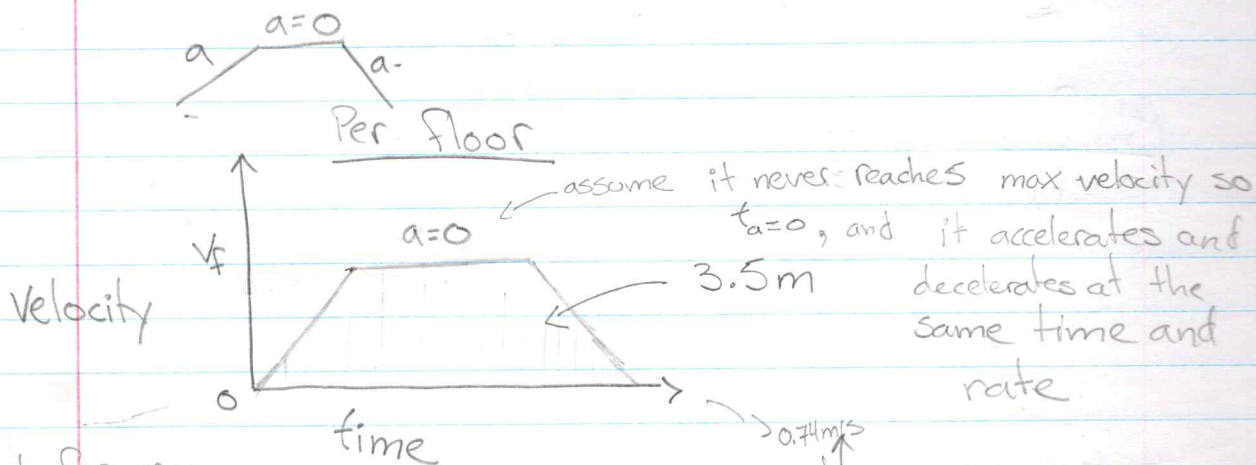 a=0
a
a-
Per floor
assume it never reaches max velocity so
t_a=0, and it accelerates and
a=0
decelerates at the
V_f
3.5m
same time and
Velocity
rate
0
time
0.74m/s